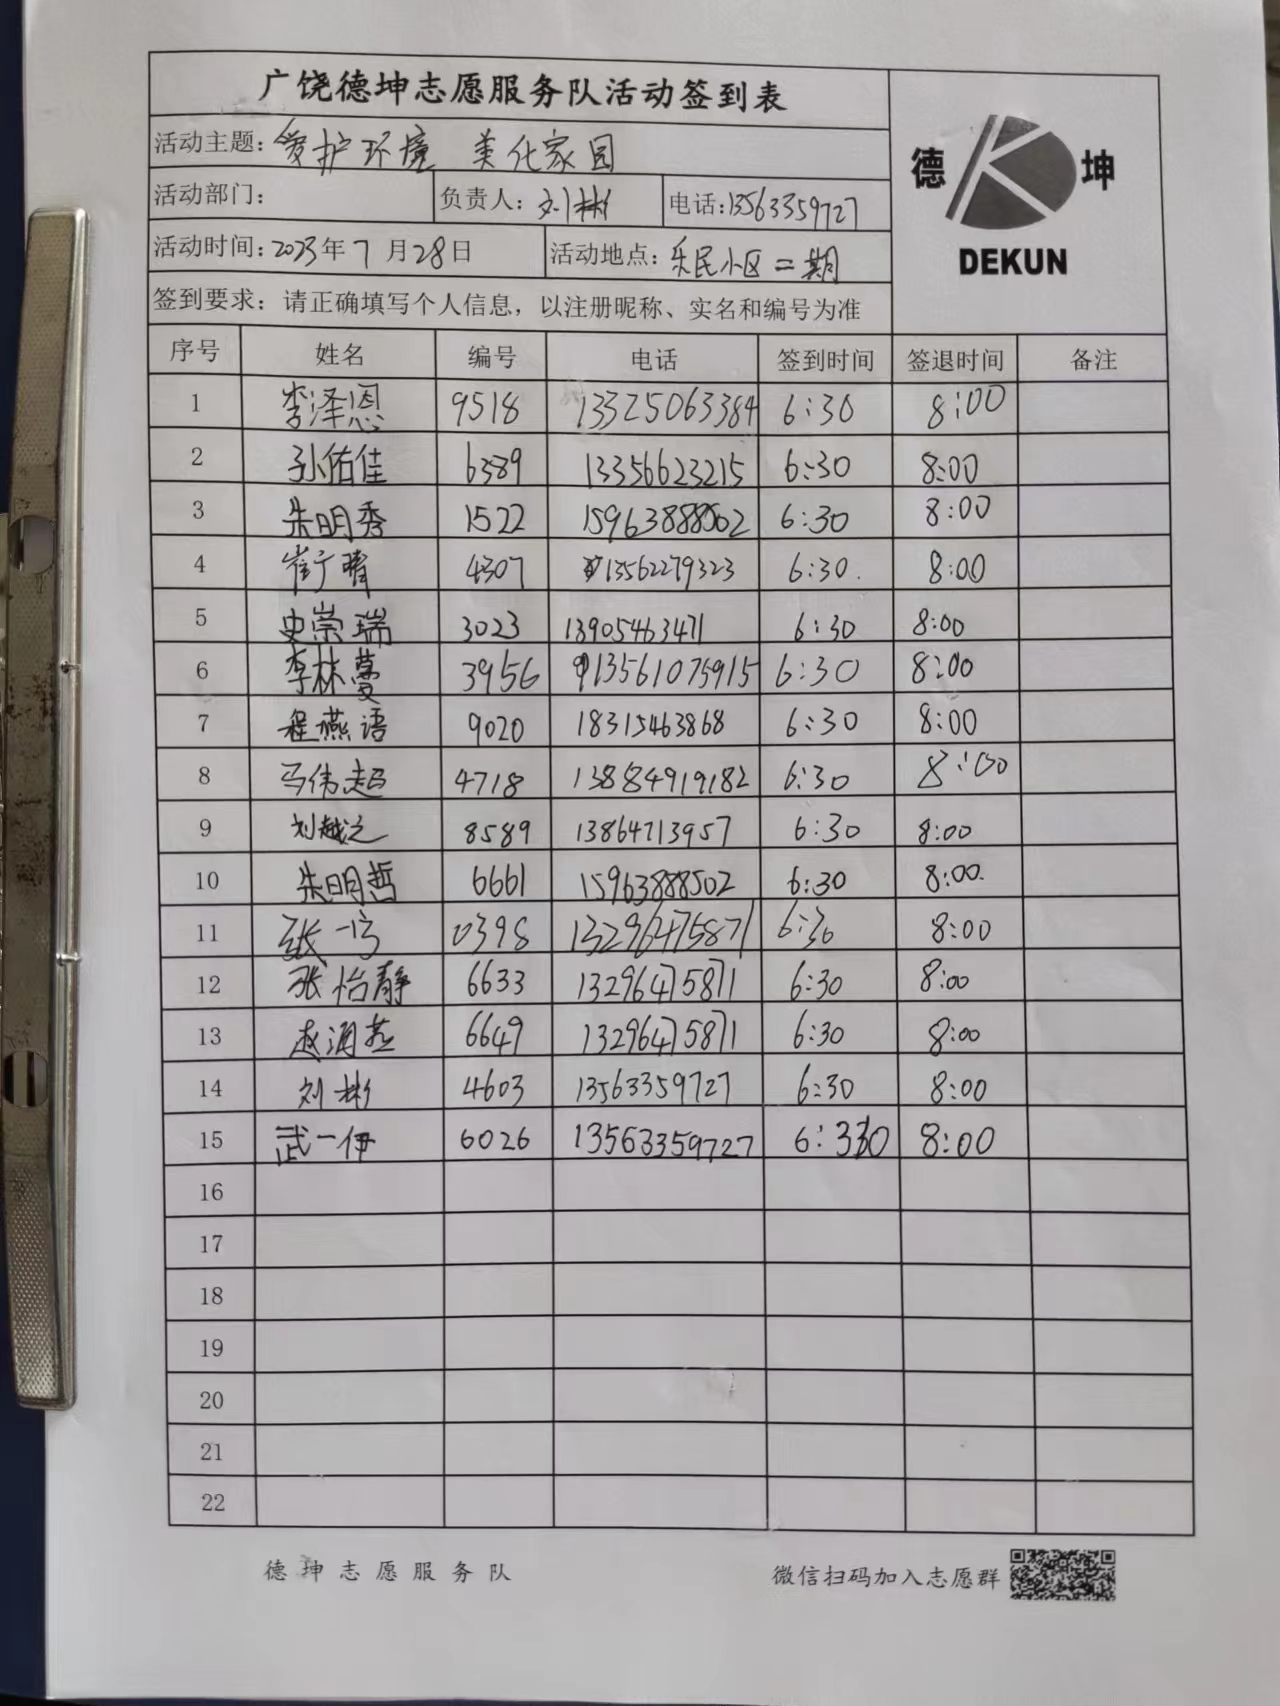 广饶德坤志愿服务队活动签到表
德 坤
DEKUN
活动主题：爱护环境 美化家园
活动部门： 负责人：刘彬 电话：13563359727
活动时间：2023年7月28日 活动地点：乐民小区二期
签到要求：请正确填写个人信息，以注册昵称、实名和编号为准
序号 姓名 编号 电话 签到时间 签退时间 备注
1 李泽恩 9518 13325063384 6:30 8:00
2 孙佑佳 6389 13356623215 6:30 8:00
3 朱明秀 1522 15963888502 6:30 8:00
4 崔广晴 4307 13562279323 6:30. 8:00
5 史崇瑞 3023 13905463471 6:30 8:00
6 李林蔓 3956 13561075915 6:30 8:00
7 程燕语 9020 18315463868 6:30 8:00
8 马伟超 4718 13884919182 6:30 8:00
9 刘越之 8589 13864713957 6:30 8:00
10 朱明哲 6661 15963888502 6:30 8:00.
11 张一 0398 13296475871 6:30 8:00
12 张怡静 6633 13296475871 6:30 8:00
13 赵涵 6649 13296475871 6:30 8:00
14 刘彬 4603 13563359727 6:30 8:00
15 武一伊 6026 13563359727 6:330 8:00
16
17
18
19
20
21
22
德坤志愿服务队 微信扫码加入志愿群